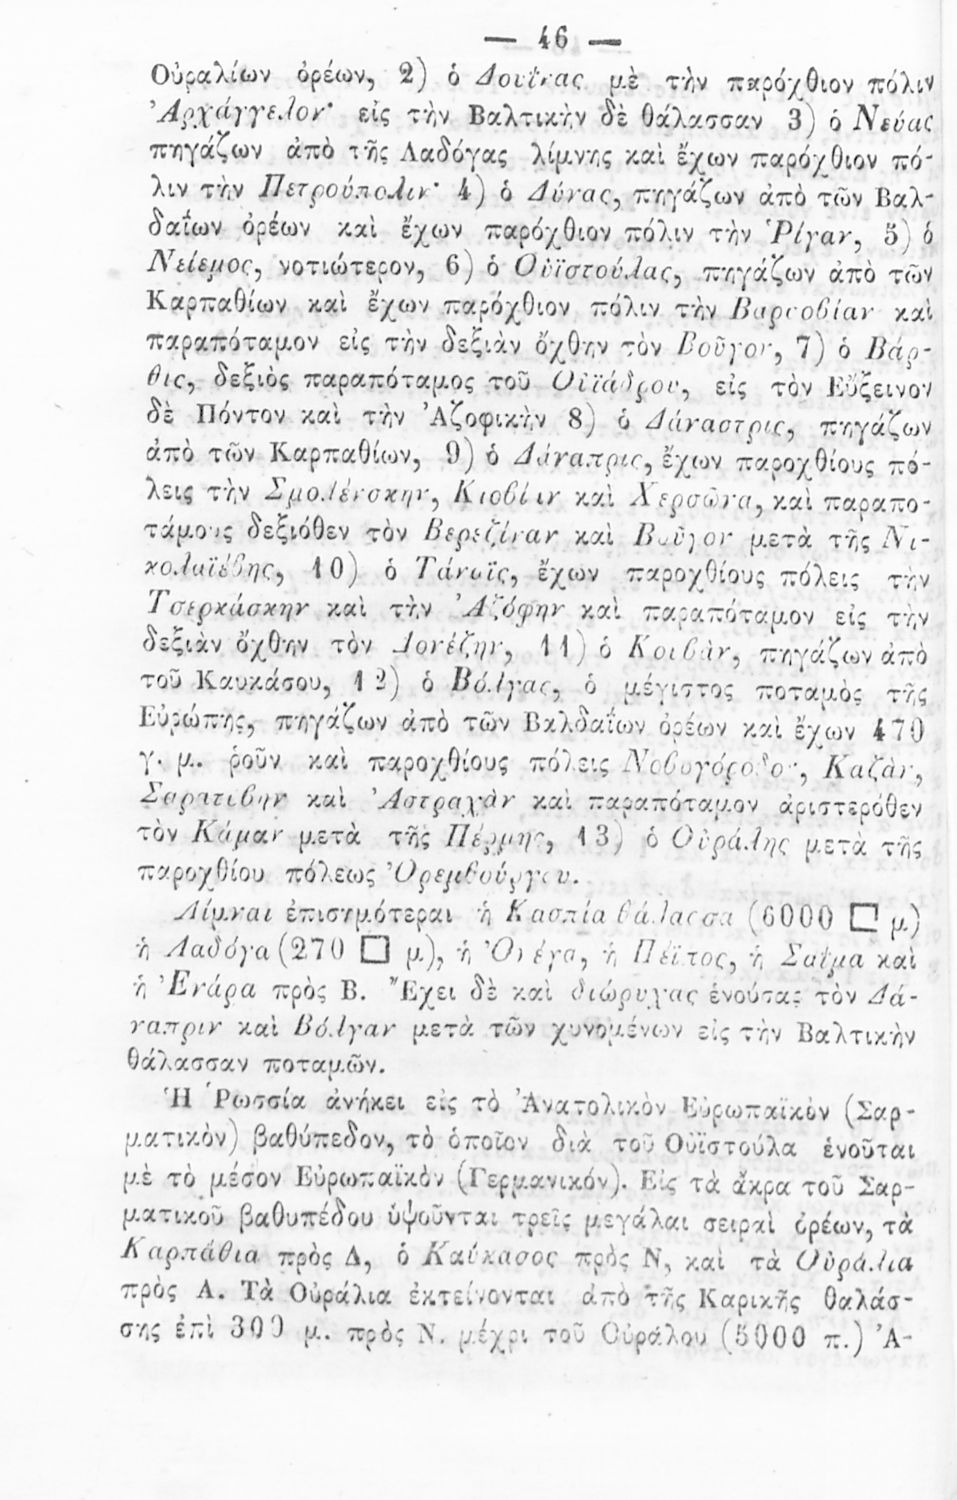 — 46 —
Οὐραλίων ὀρέων, 2) ὁ Δουΐνας μὲ τὴν παρόχθιον πόλιν
Ἀρχάγγελον· εἰς τὴν Βαλτικὴν δὲ θάλασσαν 3) ὁ Νεύας
πηγάζων ἀπὸ τῆς Λαδόγας λίμνης καὶ ἔχων παρόχθιον πό-
λιν τὴν Πετρούπολιν· 4) ὁ Δύνας, πηγάζων ἀπὸ τῶν Βαλ-
δαΐων ὀρέων καὶ ἔχων παρόχθιον πόλιν τὴν Ῥίγαν, 5) ὁ
Νείεμος, νοτιώτερον, 6) ὁ Οὐϊστούλας, πηγάζων ἀπὸ τῶν
Καρπαθίων καὶ ἔχων παρόχθιον πόλιν τὴν Βαρσοβίαν καὶ
παραπόταμον εἰς τὴν δεξιὰν ὄχθην τὸν Βοῦγον, 7) ὁ Βάρ-
θις, δεξιὸς παραπόταμος τοῦ Οὐϊάδρου, εἰς τὸν Εὔξεινον
δὲ Πόντον καὶ τὴν Ἀζοφικὴν 8) ὁ Δάναστρις, πηγάζων
ἀπὸ τῶν Καρπαθίων, 9) ὁ Δάναπρις, ἔχων παροχθίους πό-
λεις τὴν Σμολένσκην, Κιοβίαν καὶ Χερσῶνα, καὶ παραπο-
τάμους δεξιόθεν τὸν Βερεζίναν καὶ Βοῦγον μετὰ τῆς Νι-
κολαϊέβης, 10) ὁ Τάναϊς, ἔχων παροχθίους πόλεις τὴν
Τσερκάσκην καὶ τὴν Ἀζόφην καὶ παραπόταμον εἰς τὴν
δεξιὰν ὄχθην τὸν Δονέζην, 11) ὁ Κουβὰν, πηγάζων ἀπὸ
τοῦ Καυκάσου, 12) ὁ Βόλγας, ὁ μέγιστος ποταμὸς τῆς
Εὐρώπης, πηγάζων ἀπὸ τῶν Βαλδαΐων ὀρέων καὶ ἔχων 470
γ. μ. ῥοῦν καὶ παροχθίους πόλεις Νοβογόροδον, Καζὰν,
Σαρατιβην καὶ Ἀστραχὰν καὶ παραπόταμον ἀριστερόθεν
τὸν Κάμαν μετὰ τῆς Πέρμης, 13) ὁ Οὐράλης μετὰ τῆς
παροχθίου πόλεως Ὀρεμβούργου.
Λίμναι ἐπισημότεραι ἡ Κασπία θάλασσα (6000 □ μ)
ἡ Λαδόγα (270 □ μ), ἡ Ὀνέγα, ἡ Πέϊπος, ἡ Σαΐμα καὶ
ἡ Ἐνάρα πρὸς Β. Ἔχει δὲ καὶ διώρυχας ἑνούσας τὸν Δά-
ναπριν καὶ Βόλγαν μετὰ τῶν χυνομένων εἰς τὴν Βαλτικὴν
θάλασσαν ποταμῶν.
Ἡ Ῥωσσία ἀνήκει εἰς τὸ Ἀνατολικὸν Εὐρωπαϊκὸν (Σαρ-
ματικὸν) βαθύπεδον, τὸ ὁποῖον διὰ τοῦ Οὐϊστούλα ἑνοῦται
μὲ τὸ μέσον Εὐρωπαϊκὸν (Γερμανικόν). Εἰς τὰ ἄκρα τοῦ Σαρ-
ματικοῦ βαθυπέδου ὑψοῦνται τρεῖς μεγάλαι σειραὶ ὀρέων, τὰ
Καρπάθια πρὸς Δ, ὁ Καύκασος πρὸς Ν, καὶ τὰ Οὐράλια
πρὸς Α. Τὰ Οὐράλια ἐκτείνονται ἀπὸ τῆς Καρικῆς θαλάσ-
σης ἐπὶ 300 μ. πρὸς Ν. μέχρι τοῦ Οὐράλου (5000 π.) Ἀ-